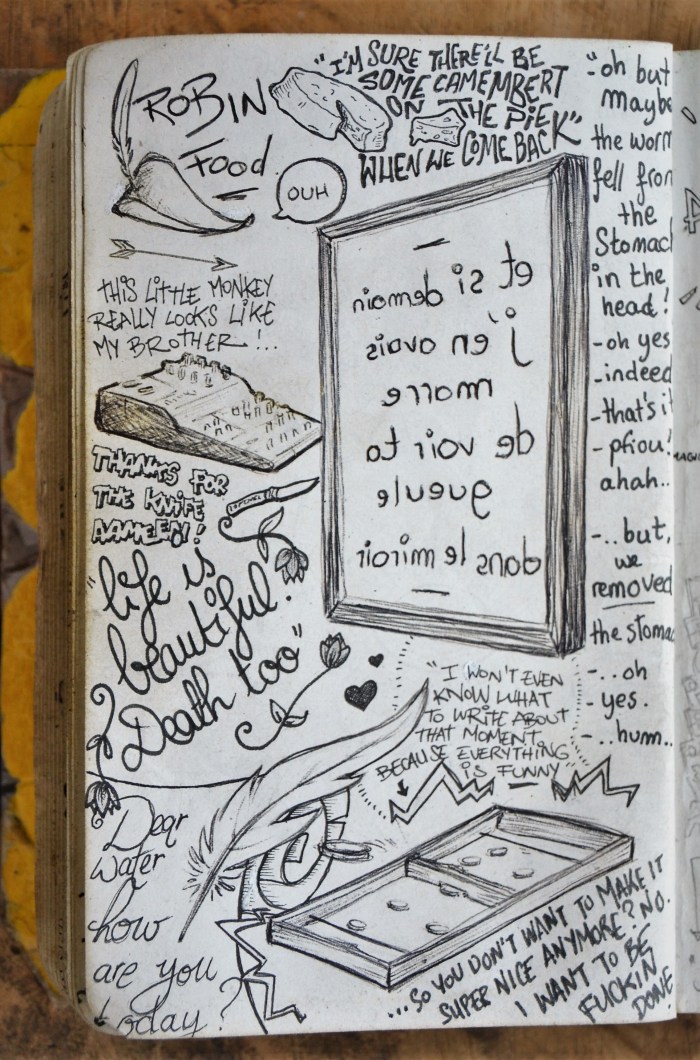 ROBIN
FOOD
"I'M SURE THERE'LL BE
SOME CAMEMBERT
ON THE PIEK"
WHEN WE COME BACK
OUH
THIS LITTLE MONKEY
REALLY LOOKS LIKE
MY BROTHER!..
THANKS FOR
THE KNIFE
"life is
beautiful.
Death too"
et si demain
j'en avais
marre
de voir ta
gueule
dans le miroir
"oh but
maybe
the worm
fell from
the
Stomach
in the
head!
-oh yes
-indeed
-that's it
-pfiou!
ahah..
-..but,
we
removed
the stomac
-..oh
-yes.
-..hum..
"I WON'T EVEN
KNOW WHAT
TO WRITE ABOUT
THAT MOMENT
BECAUSE EVERYTHING
IS FUNNY"
Dear
water
how
are you
today?
...SO YOU DON'T WANT TO MAKE IT
SUPER NICE ANYMORE? NO.
I WANT TO BE
FUCKIN
DONE